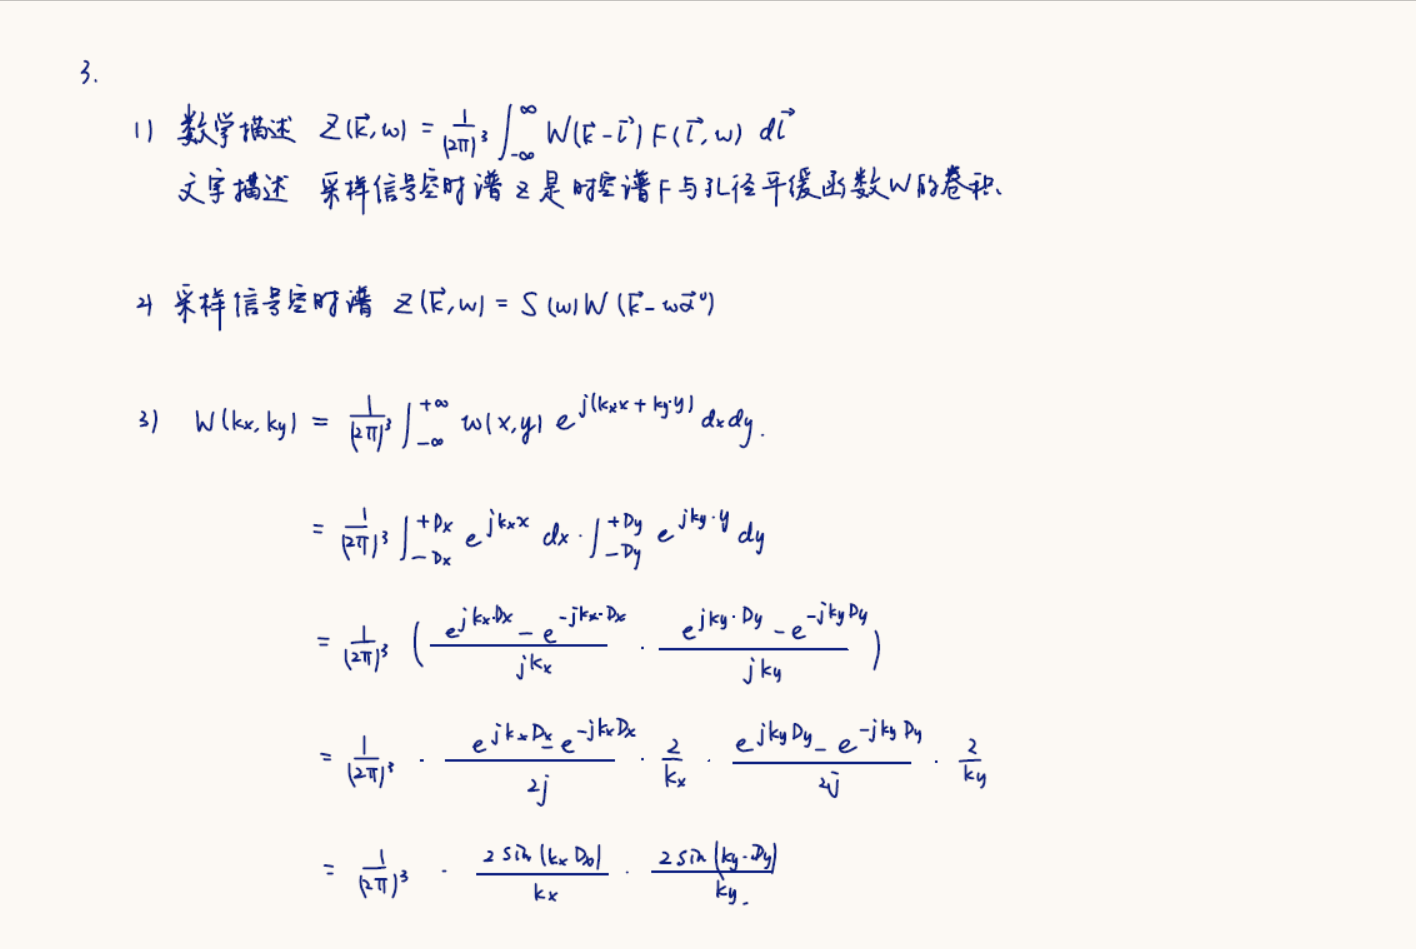 3.
1) 数学描述 Z(k⃗,ω) = 1/(2π)³ ∫_{-∞}^{∞} W(k⃗-l⃗) F(l⃗,ω) dl⃗
文字描述 采样信号空时谱Z是时空谱F与孔径平缓函数W的卷积、
2) 采样信号空时谱 Z(k⃗,ω) = S(ω)W(k⃗-ωα⃗⁰)
3) W(kx,ky) = 1/(2π)³ ∫_{-∞}^{+∞} w(x,y) e^{j(kx x + ky·y)} dxdy.
= 1/(2π)³ ∫_{-Dx}^{+Dx} e^{jkx x} dx · ∫_{-Dy}^{+Dy} e^{jky·y} dy
= 1/(2π)³ ( (e^{jkx·Dx} - e^{-jkx·Dx})/(jkx) · (e^{jky·Dy} - e^{-jkyDy})/(jky) )
= 1/(2π)³ · (e^{jkxDx} - e^{-jkxDx})/(2j) · 2/kx · (e^{jkyDy} - e^{-jkyDy})/(2j) · 2/ky
= 1/(2π)³ · 2sin(kxDx)/kx · 2sin(ky·Dy)/ky.